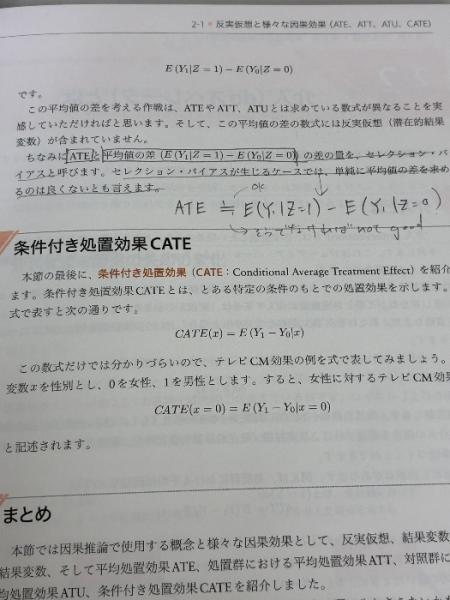 2-1 反実仮想と様々な因果効果 (ATE、ATT、ATU、CATE)
E (Y₁|Z = 1) − E (Y₀|Z = 0)
です。
この平均値の差を考える作戦は、ATEやATT、ATUとは求めている数式が異なることを実
感していただければと思います。そして、この平均値の差の数式には反実仮想（潜在的結果
変数）が含まれていません。
ちなみにATEと平均値の差 (E (Y₁|Z = 1) − E (Y₀|Z = 0)) の差の量を、セレクション・バ
イアスと呼びます。セレクション・バイアスが生じるケースでは、単純に平均値の差を求め
るのは良くないとも言えます。
OK
ATE ≒ E(Y₁|Z=1) − E(Y₁|Z=0)
not good
条件付き処置効果CATE
本節の最後に、条件付き処置効果（CATE：Conditional Average Treatment Effect）を紹介
ます。条件付き処置効果CATEとは、とある特定の条件のもとでの処置効果を示します。
式で表すと次の通りです。
CATE(x) = E (Y₁ − Y₀|x)
この数式だけでは分かりづらいので、テレビCM効果の例を式で表してみましょう。
変数xを性別とし、0を女性、1を男性とします。すると、女性に対するテレビCM効果
CATE(x = 0) = E (Y₁ − Y₀|x = 0)
と記述されます。
まとめ
本節では因果推論で使用する概念と様々な因果効果として、反実仮想、結果変数
結果変数、そして平均処置効果ATE、処置群における平均処置効果ATT、対照群に
均処置効果ATU、条件付き処置効果CATEを紹介しました。